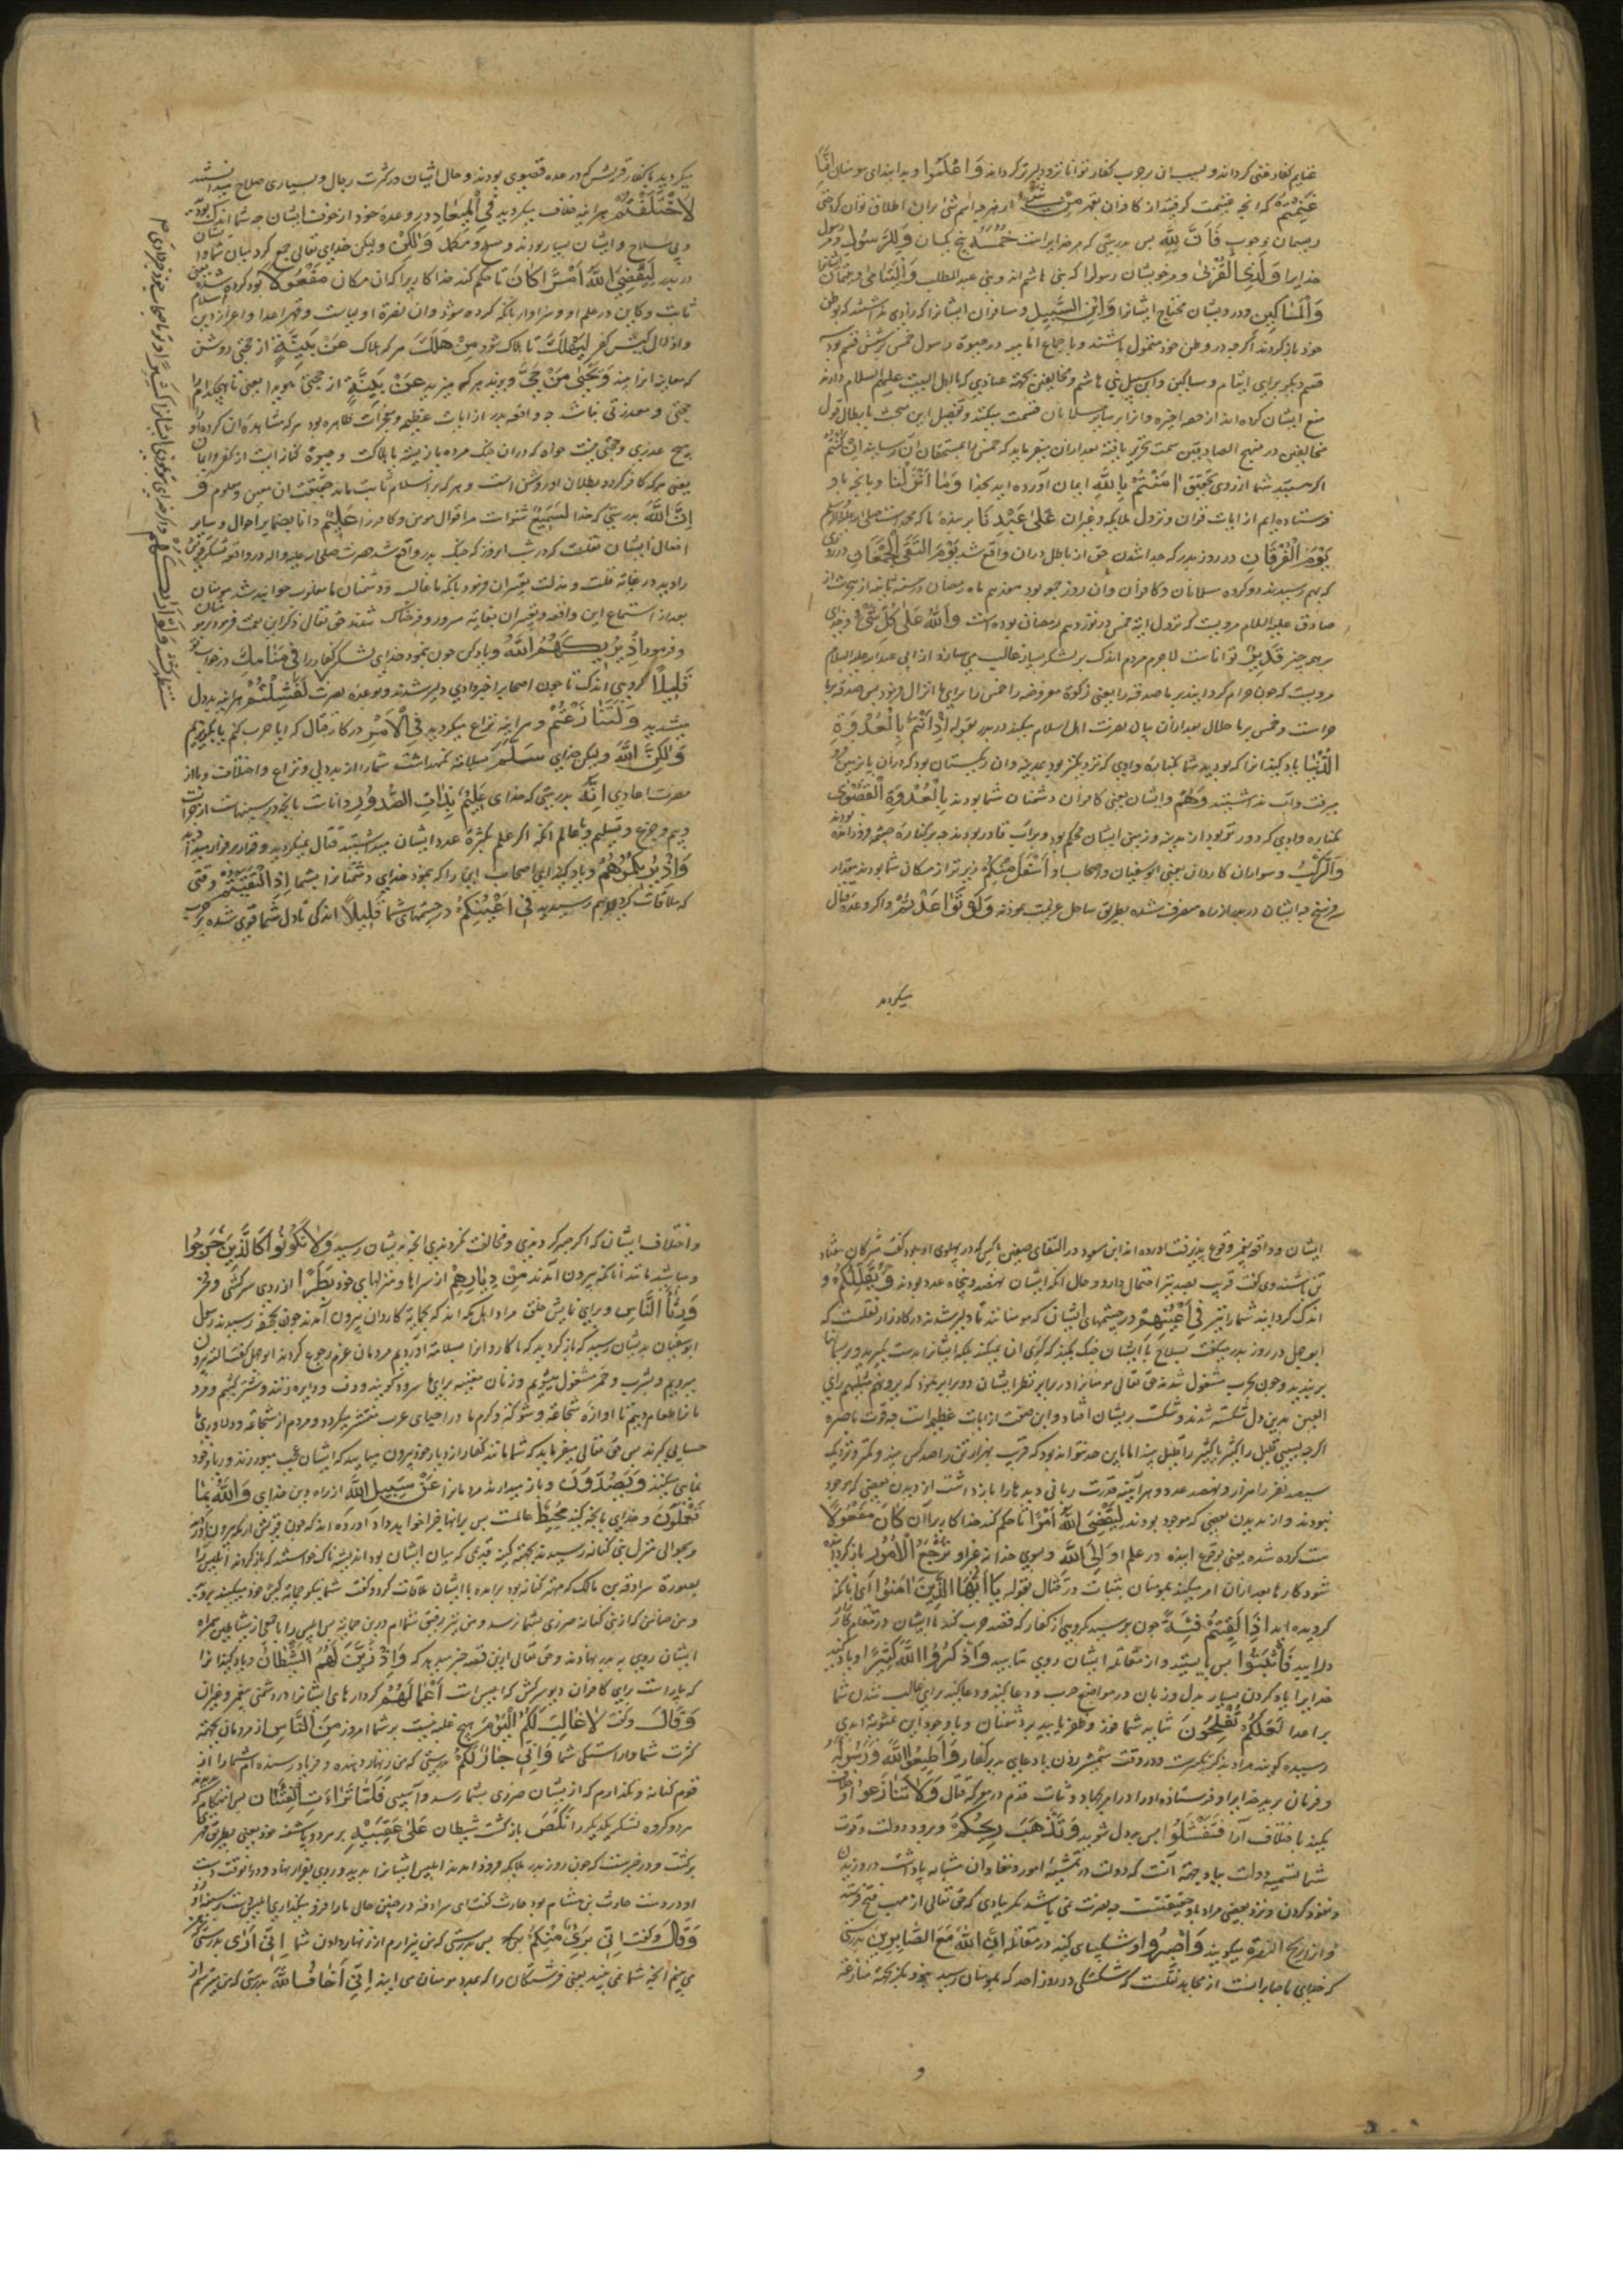 غنایم کفار غنی گرداند و بسبب آن بر حرب کفار توانا تر و دلیرتر گرداند وَاعْلَمُوا و بدانید ای مومنان اَنَّمَا
غَنِمْتُمْ که آنچه غنیمت گرفتید از کافران بقهر مِنْ شَیْءٍ از هر چه اسم شیء بر آن اطلاق توان کرد حتی
ریسمان بوجوب فَاَنَّ لِلّٰهِ پس بدرستی که مر خدایراست خُمُسَهُ پنج یک آن وَلِلرَّسُولِ و مر رسول
خدایرا وَلِذِی الْقُرْبٰی و مر خویشان رسول را که بنی هاشم اند و بنی عبد المطلب وَالْیَتَامٰی و یتیمان ایشانرا
وَالْمَسَاکِینِ و درویشان محتاج ایشانرا وَابْنِ السَّبِیلِ و مسافران ایشانرا که زادی نداشته که بوطن
خود باز گردند اگر چه در وطن خود متمول باشند و باجماع امامیه در حیوة رسول خمس بر شش قسم بود سه
قسم دیگر برای ایتام و مساکین و ابن سبیل بنی هاشم و مخالفین بجهة عنادی که با اهل البیت علیهم السلام دارند
منع ایشان کرده اند از حصه اخیره و آنرا بر سایر مسلمانان قسمت میکنند و تفصیل این مبحث با بطال قول
مخالفین در منهج الصادقین سمت تحریر یافته بعد از آن میفرماید که خمس را بمستحقان آن رسانید اِنْ کُنْتُمْ
اگر هستید شما از روی تحقیق اٰمَنْتُمْ بِاللّٰهِ ایمان آورده اید بخدا وَمَا اَنْزَلْنَا و بآنچه ما و
فرستاده ایم از آیات قرآن و نزول ملایکه و غیر آن عَلٰی عَبْدِنَا بر بنده ما که محمد است صلی الله علیه و آله و سلم
یَوْمَ الْفُرْقَانِ در روز بدر که جدا شدن حق از باطل در آن واقع شد یَوْمَ الْتَقَی الْجَمْعَانِ در روزی
که بهم رسیدند دو گروه مسلمانان و کافران و آن روز جمعه بود هفدهم ماه رمضان در سنه ثانیه از هجرت از
صادق علیه السلام مرویست که نزول آیة خمس در نوزدهم رمضان بوده است وَاللّٰهُ عَلٰی کُلِّ شَیْءٍ و خدای
بر همه چیز قَدِیرٌ توانا است لا جرم مردم اندک بر لشکر بسیار غالب می سازد از ابی عبد الله علیه السلام
مرویست که چون حرام گردانید بر ما صدقه را یعنی زکوة مفروضه را خمس را برای ما انزال فرمود پس صدقه بر ما
حرامست و خمس بر ما حلال بعد از آن بیان نصرت اهل اسلام میکند در بدر بقوله اِذْ اَنْتُمْ بِالْعُدْوَةِ
الدُّنْیَا یاد کنید آنرا که بودید شما بکنارهٔ وادی که نزدیکتر بود بمدینه و آن ریگستان بود که در آن پا بزمین فرو
میرفت و آب نداشتند وَهُمْ و ایشان یعنی کافران دشمنان شما بودند بِالْعُدْوَةِ الْقُصْوٰی
بکنارهٔ وادی که دورتر بود از مدینه و زمین ایشان محکم بود و بر آب قادر بودند چه بر کنارهٔ چشمه فرود آمده بودند
وَالرَّکْبُ و سواران کاروان یعنی ابو سفیان و اصحاب او اَسْفَلَ مِنْکُمْ زیر تر از مکان شما بودند بمقدار
سه فرسخ چه ایشان در بدر از راه منحرف شده بطریق ساحل عزیمت نمودند وَلَوْ تَوَاعَدْتُمْ و اگر وعدهٔ قتال
میکردید
میکردید با کفار قریش که در عدوه قصوی بودند و حال ایشان در کثرت رجال و بسیاری صلاح میدانستند
لَاخْتَلَفْتُمْ هر آینه خلاف میکردید فِی الْمِیعَادِ در وعدهٔ خود از خوف ایشان چه شما اندک بودید
و بی سلاح و ایشان بسیار بودند و مسلح و مکمل وَلٰکِنْ و لیکن خدای تعالی جمع کرد میان شما و ایشان
در بدر لِیَقْضِیَ اللّٰهُ اَمْرًا کَانَ تا حکم کند خدا کاریرا که آن مکان مَفْعُولًا بود کرده شده یعنی
ثابت و کاین در علم او و سزاوار بآنکه کرده شود و آن نصرة اولیاست و قهر اعدا و اعزاز دین اسلام
و اذلال کیش کفر لِیَهْلِکَ تا هلاک شود مَنْ هَلَکَ هر که هلاک عَنْ بَیِّنَةٍ از حجتی روشن
که معاینه آنرا بیند وَیَحْیٰی مَنْ حَیَّ و بزید هر که میزید عَنْ بَیِّنَةٍ از حجتی هویدا یعنی تا هیچکدام را
حجتی و معذرتی نباشد چه واقعه بدر از آیات عظیمه و معجزات ظاهره بود هر که مشاهده آن کرده او را
هیچ عذری و حجتی نیست خواه که در آن جنگ مرده یا زیسته یا هلاکت و حیوة کنایه است از کفر و ایمان
یعنی هر که کافر گردد بطلان او روشن است و هر که بر اسلام ثابت ماند حقیقت آن مبین و معلوم و
اِنَّ اللّٰهَ بدرستی که خدا لَسَمِیعٌ شنواست مر اقوال مومن و کافر را عَلِیمٌ دانا بضمایر احوال و سایر
افعال ایشان نقلست که در شب آن روز که جنگ بدر واقع شد حضرت صلی الله علیه و اله در واقعه لشکر قریش
را دید در غایة قلت و مذلت تعبیر آن فرمود بآنکه ما غالب و دشمنان ما مغلوب خواهند شد مومنان
بعد از استماع این واقعه و تعبیر آن بغایة مسرور و فرحناک شدند حق تعالی ذکر این نعمت فرمود بر مومنان
و فرمود اِذْ یُرِیکَهُمُ اللّٰهُ و یاد کن چون بنمود خدای لشکر کفار را فِی مَنَامِکَ در خواب تو
قَلِیلًا گروهی اندک تا چون اصحاب را خبر دادی دلیر شدند و بوعده نصرت لَفَشِلْتُمْ هر آینه بد دل
میشدید وَلَتَنَازَعْتُمْ و هر آینه نزاع میکردید فِی الْاَمْرِ در کار قتال که آیا حرب کنیم یا بگریزیم
وَلٰکِنَّ اللّٰهَ و لیکن خدای سَلَّمَ بسلامة نگهداشت شما را از بد دلی و نزاع و اختلاف و یا از
مضرت اعادی اِنَّهُ بدرستی که خدای عَلِیمٌ بِذَاتِ الصُّدُورِ داناست بآنچه در سینهاست از جرات
و بیم و جزع و تسلیم و یا عالم آنکه اگر علم بکثرة عدد ایشان میداشتید قتال نمیکردید و قرار بر فرار میدادید
وَاِذْ یُرِیکُمُوهُمْ و یاد کنید ای اصحاب این را که بنمود خدای دشمنانرا بشما اِذِ الْتَقَیْتُمْ وقتی
که ملاقات کردید و بهم رسیدید فِی اَعْیُنِکُمْ در چشمهای شما قَلِیلًا اندکی تا دل شما قوی شده بر حرب
وَلَوْ اَرَاکَهُمْ و اگر خدای بتو نمودی ایشانرا کَثِیرًا
ایشان و واقعهٔ پیغمبر وقوع پذیرفت آورده اند ابن مسعود در التقای صفین با کسی که در پهلوی او بود گفت مشرکان هفتاد
تن باشند وی گفت قریب بصد نیز احتمال دارد و حال آنکه ایشان نهصد و پنجاه عدد بودند وَیُقَلِّلُکُمْ و
اندک گردانید شما را نیز فِی اَعْیُنِهِمْ در چشمهای ایشان که مومنانند تا دلیر شوند در کارزار نقلست که
ابو جهل در روز بدر میگفت بسلاح با ایشان جنگ نکنید که کُری آن نمیکند بلکه ایشانرا بدست بگیرید و بریسمانها
بر بندید و چون بحرب مشغول شدند حق تعالی مومنانرا در برابر نظر ایشان دو برابر نمود که یرونهم مثلیهم رای
العین بدین دل شکسته شدند و شکست بر ایشان افتاد و این صفت از آیات عظیمه است چه قوت باصره
اگر چه بسببی قلیل را کثیر یا کثیر را قلیل بیند اما باین حد نتواند بود که قریب بهزار تن را صد کس بیند و کمتر و نزدیک
سیصد نفر را هزار و نهصد عدد و هر آینه قدرت ربانی دیدها را باز داشت از دیدن بعضی که موجود
نبودند و از ندیدن بعضی که موجود بودند لِیَقْضِیَ اللّٰهُ اَمْرًا تا حکم کند خدا کاریرا آن کَانَ مَفْعُولًا
هست کرده شده یعنی بوقوع آینده در علم او وَاِلَی اللّٰهِ و بسوی خدا نه غیر او تُرْجَعُ الْاُمُورُ باز گردانیده
شود کارها بعد از آن امر میکند بمومنان بثبات در قتال بقوله یَا اَیُّهَا الَّذِینَ اٰمَنُوا ای آنانکه
گرویده اید اِذَا لَقِیتُمْ فِئَةً چون برسید بگروهی از کفار که قصد حرب کنند با ایشان در مقام کارزار
در آیید فَاثْبُتُوا پس بایستید و از مقاتله ایشان روی متابید وَاذْکُرُوا اللّٰهَ کَثِیرًا و یاد کنید
خدایرا یاد کردن بسیار بدل و زبان در مواضع حرب و دعا کنید و دعا کنید برای غالب شدن شما
بر اعدا لَعَلَّکُمْ تُفْلِحُونَ شاید شما فوز و ظفر یابید بر دشمنان و باوجود این بمثوبة ابدی
رسیده گویند مراد بذکر تکبیرست در وقت شمشیر زدن یا دعای بد بر کفار وَاَطِیعُوا اللّٰهَ وَرَسُولَهُ
و فرمان برید خدایرا و فرستاده او را در امر جهاد و ثبات قدم در معرکه قتال وَلَا تَنَازَعُوا و خلاف
مکنید باختلاف آرا فَتَفْشَلُوا پس بد دل شوید وَتَذْهَبَ رِیحُکُمْ و برود دولت و قوت
شما تسمیه دولت بباد بجهة آنست که دولت در تمشیة امور و نفاد آن مشابه باد است در وزیدن
و نفوذ کردن و نزد بعضی مراد باد حقیقتست چه نصرت نمی باشد مگر ببادی که حق تعالی از مهب فتح فرستد
و آنرا ریح النصرة میگویند وَاصْبِرُوا و شکیبای کنید در مقاتله اِنَّ اللّٰهَ مَعَ الصَّابِرِینَ بدرستی
که خدای با صابرانست از مجاهد نقلست که شکستگی در روز احد که بمومنان رسید نبود مگر بجهة منازعه
و
و اختلاف ایشان که اگر صبر کردندی و مخالفت نکردندی آنچه بدیشان رسید وَلَا تَکُونُوا کَالَّذِینَ خَرَجُوا
و مباشید مانند آنانکه بیرون آمدند مِنْ دِیَارِهِمْ از سراها و منزلهای خود بَطَرًا از روی سرکشی و فخر
وَرِئَاءَ النَّاسِ و برای نمایش خلق مراد اهل مکه اند که بحمایة کاروان بیرون آمدند چون بجحفه رسیدند رسول
ابو سفیان بدیشان رسید که باز گردید که ما کاروانرا بسلامة آوردیم مردمان عزم رجوع کردند ابو جهل گفت البته بیدر
میرویم و بشرب و خمر مشغول میشویم و زنان مغنیه برای ما سرود گویند و دف و دایره زنند و شتر بکشیم و مرد
مانرا طعام دهیم تا آوازه شجاعة و شوکة و کرم ما در احیای عرب منتشر گردد و مردم از شجاعة و دلاوری ما
حسابی گیرند پس حق تعالی میفرماید که شما مانند کفار از دیار خود بیرون میایید که ایشان عجب میورزند و ریا و خود
نمایی میکنند وَیَصُدُّونَ و باز میدارند مردمانرا عَنْ سَبِیلِ اللّٰهِ از راه دین خدای وَاللّٰهُ بِمَا
تَعْمَلُونَ و خدای بآنچه میکنید مُحِیطٌ عالمست پس بر آنها جزا خواهد داد آورده اند که چون قریش از مکه بیرون آمدند
و بحوالی منزل بنی کنانه رسیدند بجهة کینهٔ قدیمی که میان ایشان بود اندیشه ناک خواستند که باز گردند ابلیس آنرا
بصورة سراقه بن مالک که مهتر کنانه بود بر آمده با ایشان ملاقات کرد و گفت شما نیکو حمایة کیش خود میکنید بروید
و من ضامن که از بنی کنانه ضرری بشما نرسد و من نیز رفیق شما ام درین حمایة پس ابلیس را با جمعی از شیاطین همراه
ایشان روی به بدر نهادند و حق تعالی ازین قصه خبر میدهد که وَاِذْ زَیَّنَ لَهُمُ الشَّیْطَانُ و یاد کنید آنرا
که بیاراست برای کافران دیو سرکش که ابلیس است اَعْمَالَهُمْ کردارهای ایشانرا در دشمنی پیغمبر و غیر آن
وَقَالَ و گفت لَا غَالِبَ لَکُمُ الْیَوْمَ هیچ غلبه نیست بر شما امروز مِنَ النَّاسِ از مردمان بجهة
کثرت شما و آراستگی شما وَاِنِّی جَارٌ لَکُمْ بدرستی که من زنهار دهنده و فریاد رسنده ام شما را از
قوم کنانه و نگذارم که از یشان ضرری بشما رسد و آسیبی فَلَمَّا تَرَاءَتِ الْفِئَتَانِ پس آن هنگام که
هر دو گروه لشکر یکدیگر را نَکَصَ باز گشت شیطان عَلٰی عَقِبَیْهِ بر هر دو پاشنه خود یعنی بطریق قهقری
بر گشت و در خبرست که چون روز بدر ملایکه فرود آمدند ابلیس ایشانرا بدید و روی بفرار نهاد و در آنوقت دست
او در دست حارث بن هشام بود حارث گفت ای سراقه در چنین حال ما را فرو میگذاری ابلیس دست بر سینه او زد
وَقَالَ و گفت اِنِّی بَرِیءٌ مِنْکُمْ پس بدرستی که من بیزارم از زنهار دادن شما اِنِّی اَرٰی بدرستی که من
می بینم آنچه شما نمی بینید یعنی فرشتگان را که بمدد مومنان می آیند اِنِّی اَخَافُ اللّٰهَ بدرستی که من میترسم از